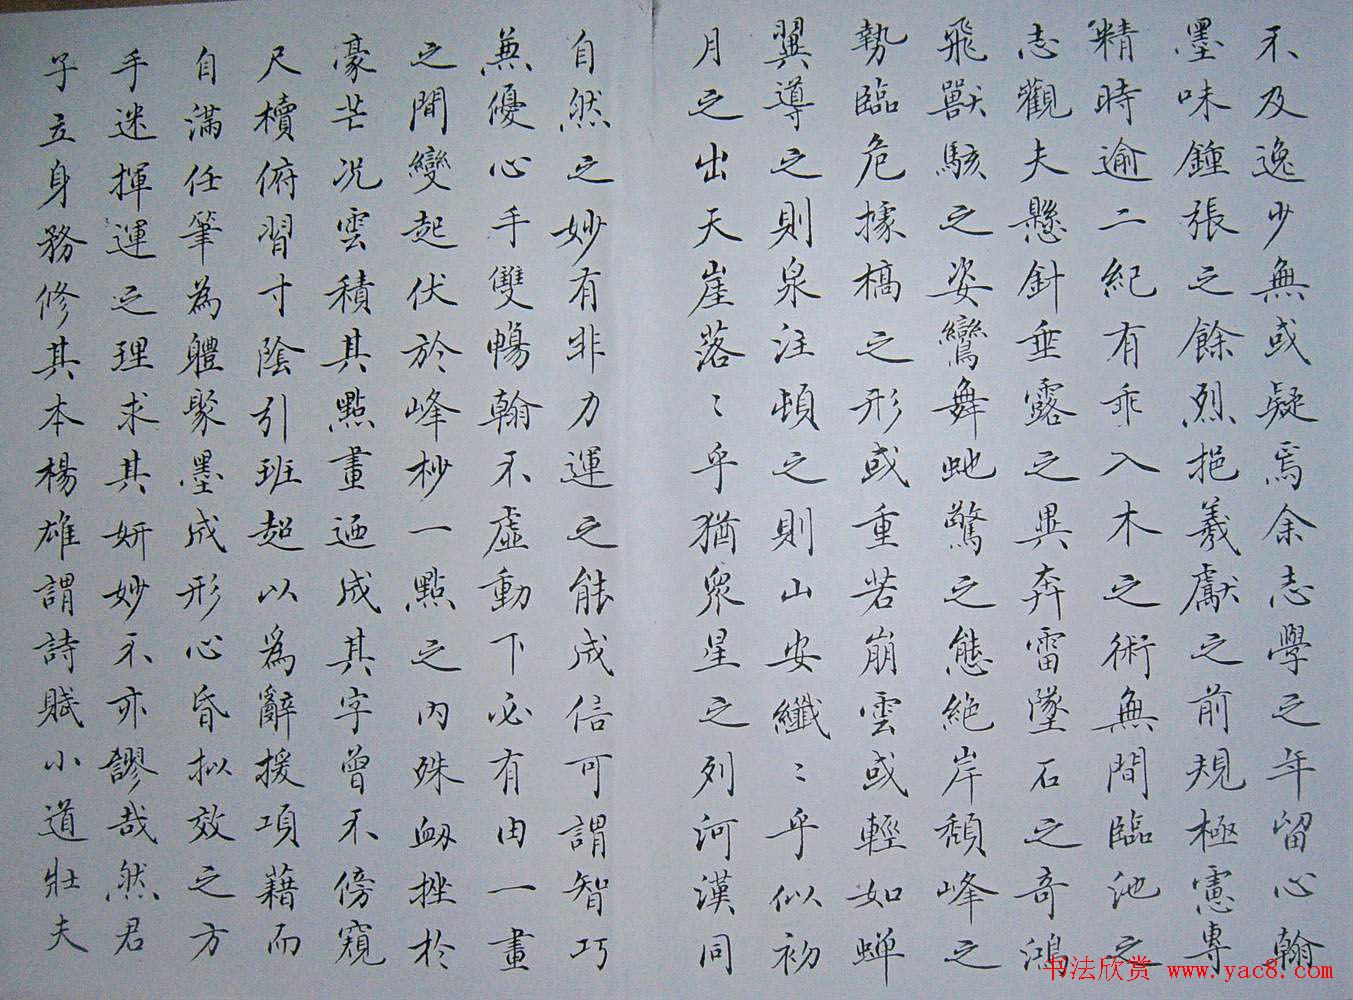 不及逸少無或疑焉余志學之年留心翰
墨味鍾張之餘烈挹羲獻之前規極慮專
精時逾二紀有乖入木之術無間臨池之
志觀夫懸針垂露之異奔雷墜石之奇鴻
飛獸駭之姿鸞舞虵驚之態絕岸頹峰之
勢臨危據槁之形或重若崩雲或輕如蝉
翼導之則泉注頓之則山安纖〻乎似初
月之出天崖落〻乎猶衆星之列河漢同
自然之妙有非力運之能成信可謂智巧
兼優心手雙暢翰不虛動下必有由一畫
之間變起伏於峰杪一點之內殊衂挫於
豪芒况雲積其點畫迺成其字曾不傍窺
尺櫝俯習寸陰引班超以為辭援項藉而
自滿任筆為體聚墨成形心昏拟效之方
手迷揮運之理求其妍妙不亦謬哉然君
子立身務修其本楊雄謂詩賦小道壯夫
书法欣赏 www.yac8.com